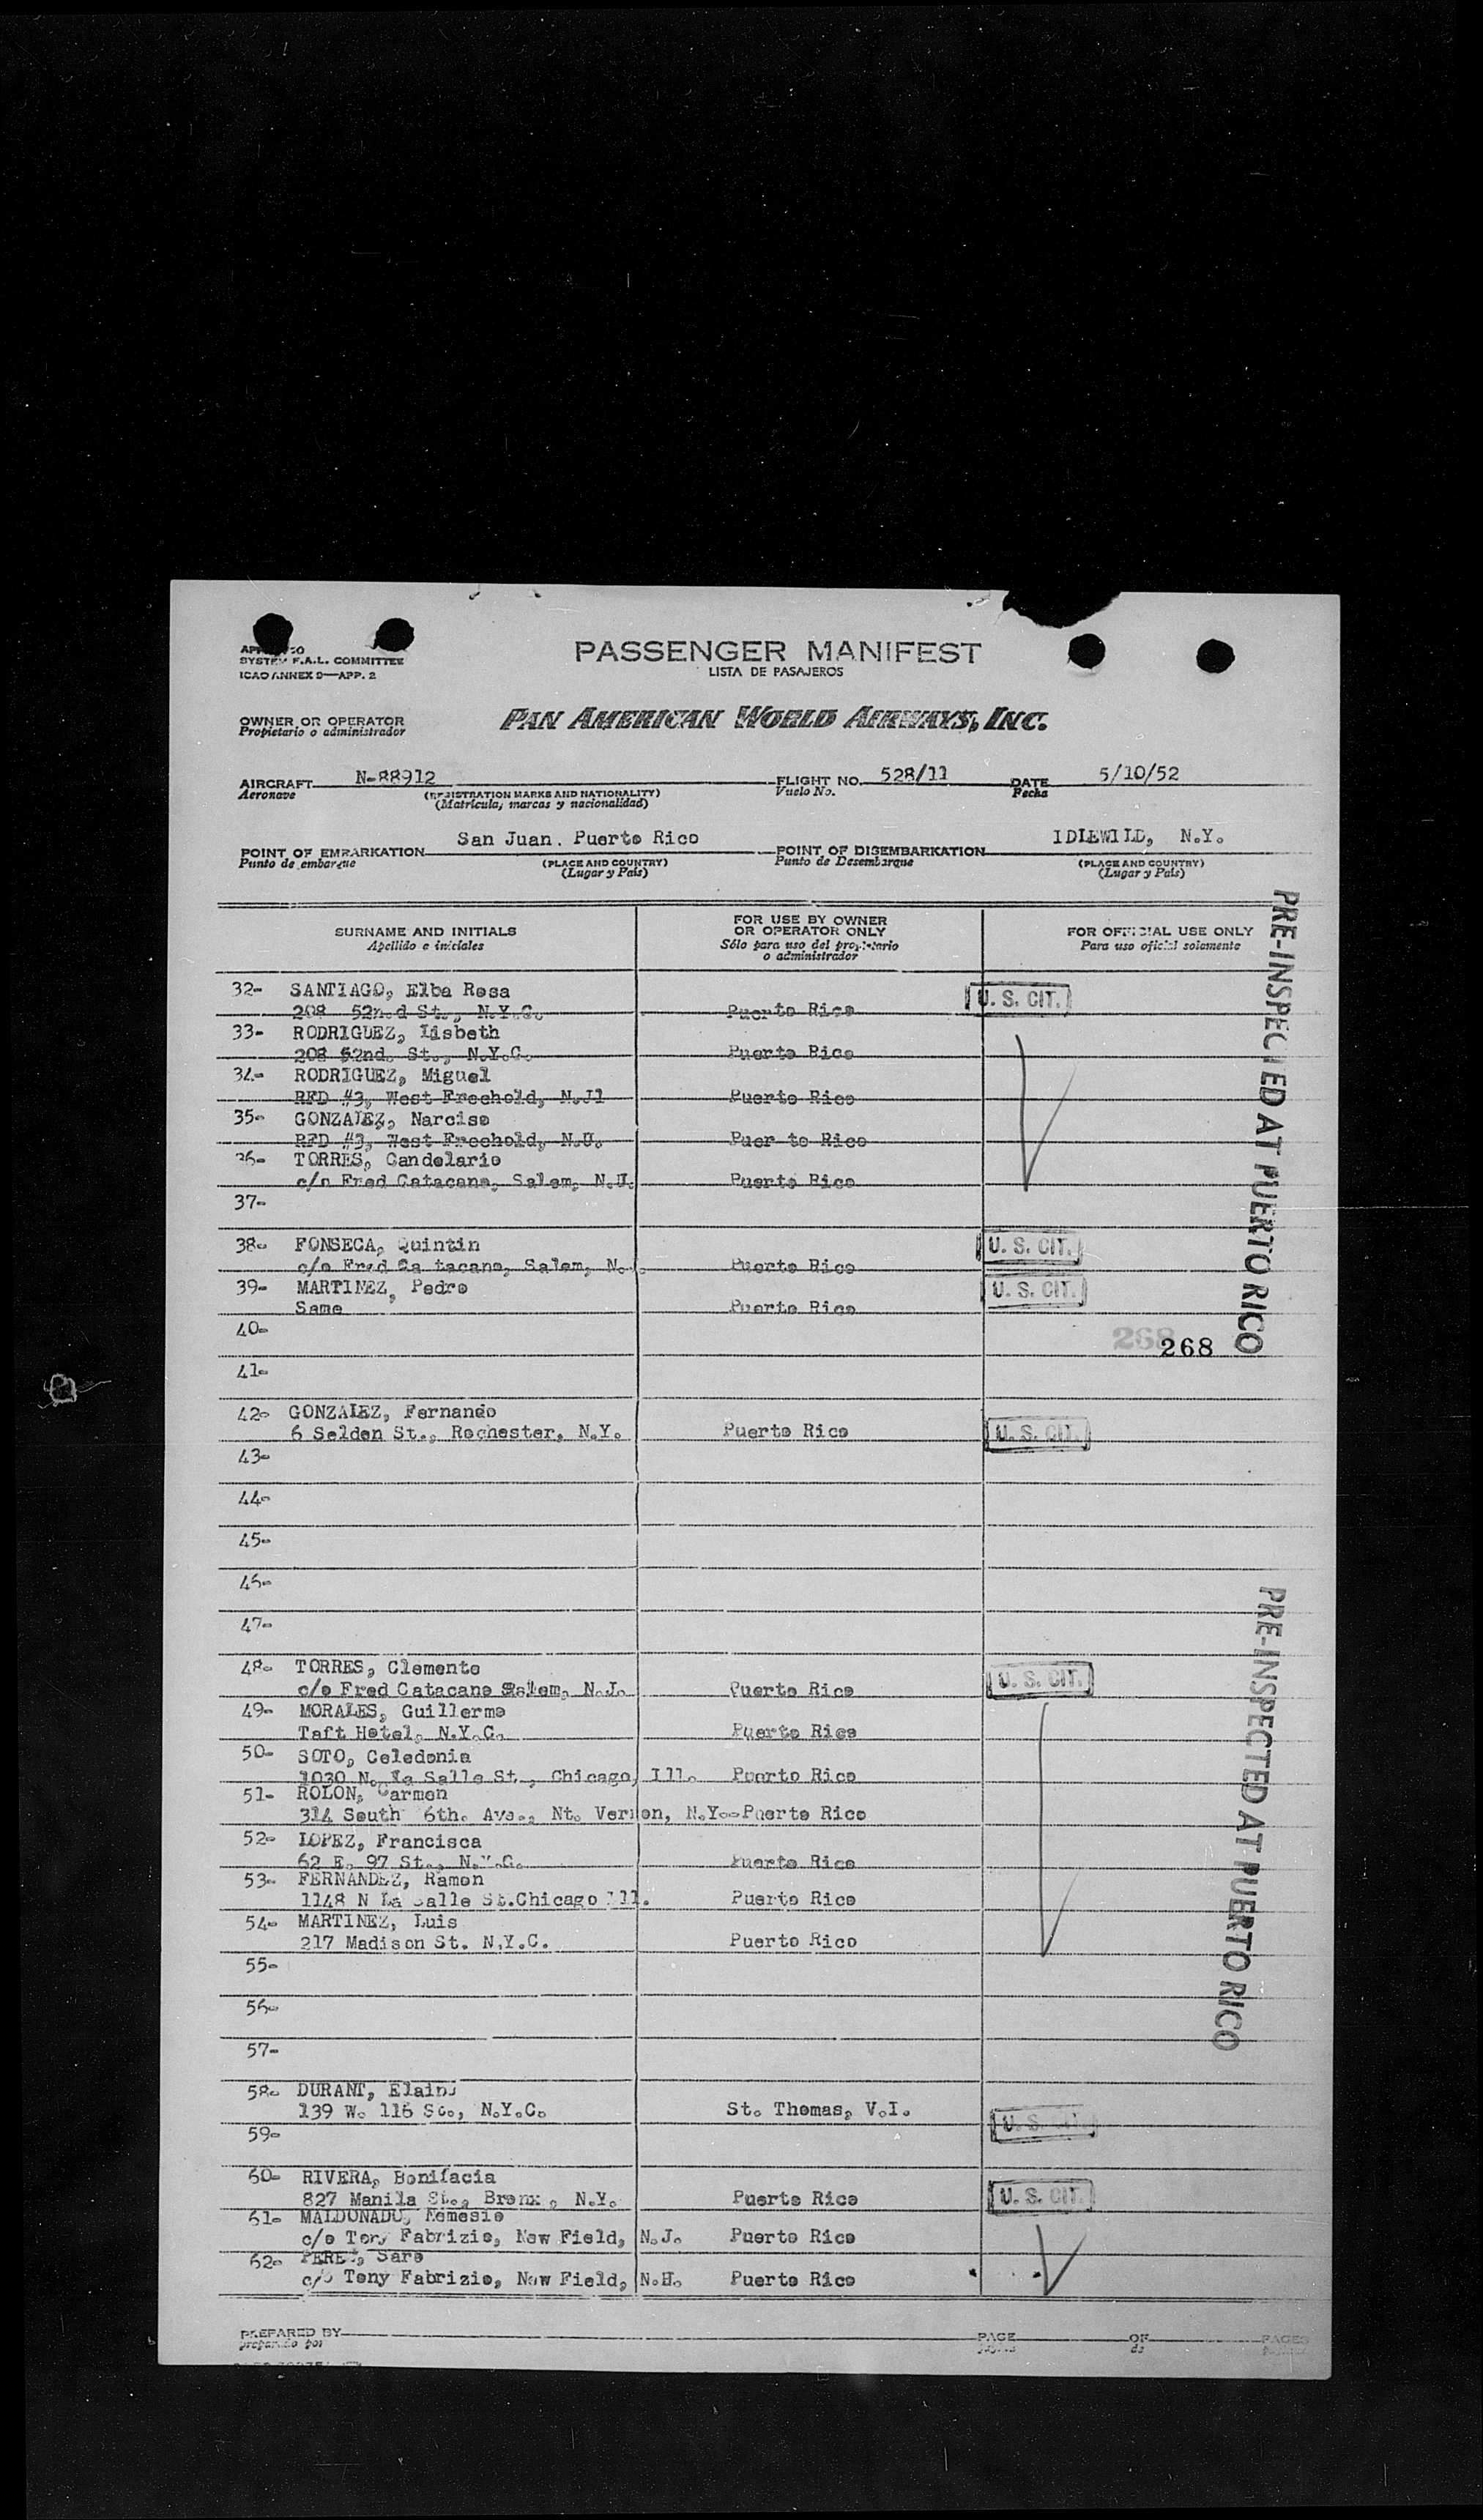 SYSTEM F.A.L. COMMITTEE
ICAO ANNEX 9—APP. 2
PASSENGER MANIFEST
LISTA DE PASAJEROS
OWNER OR OPERATOR
Propietario o administrador
PAN AMERICAN WORLD AIRWAYS, INC.
AIRCRAFT N-88912 FLIGHT NO. 528/11 DATE 5/10/52
Aeronave (REGISTRATION MARKS AND NATIONALITY) Vuelo No. Fecha
(Matrícula, marcas y nacionalidad)
POINT OF EMBARKATION San Juan. Puerto Rico POINT OF DISEMBARKATION IDLEWILD, N.Y.
Punto de embarque (PLACE AND COUNTRY) Punto de Desembarque (PLACE AND COUNTRY)
(Lugar y País) (Lugar y País)
SURNAME AND INITIALS FOR USE BY OWNER OR OPERATOR ONLY FOR OFFICIAL USE ONLY
Apellido e iniciales Sólo para uso del propietario o administrador Para uso oficial solamente
32- SANTIAGO, Elba Rosa U. S. CIT.
208 52nd St., N.Y.C. Puerto Rico
33- RODRIGUEZ, Lisbeth
208 52nd. St., N.Y.C. Puerto Rico
34- RODRIGUEZ, Miguel
RFD #3, West Freehold, N.J1 Puerto Rico
35- GONZALEZ, Narciso
RFD #3, West Freehold, N.U. Puer to Rico
36- TORRES, Candelario
c/o Fred Catacano, Salem, N.U. Puerto Rico
37-
38- FONSECA, Quintin U. S. CIT.
c/o Fred Ca tacano, Salem, N. Puerto Rico
39- MARTINEZ, Pedro U. S. CIT.
Same Puerto Rico
40-
268
268
41-
42- GONZALEZ, Fernando
6 Selden St., Rochester, N.Y. Puerto Rico U. S. CIT.
43-
44-
45-
46-
47-
48- TORRES, Clemente U. S. CIT.
c/o Fred Catacano Salem, N.J. Puerto Rico
49- MORALES, Guillermo
Taft Hotel, N.Y.C. Puerto Rico
50- SOTO, Celedonia
1030 N. La Salle St., Chicago, Ill. Puerto Rico
51- ROLON, Carmen
314 South 6th. Ave., Nt. Vernon, N.Y.-Puerto Rico
52- LOPEZ, Francisca
62 E. 97 St., N.Y.C. Puerto Rico
53- FERNANDEZ, Ramon
1148 N La Salle St.Chicago Ill. Puerto Rico
54- MARTINEZ, Luis
217 Madison St. N.Y.C. Puerto Rico
55-
56-
57-
58- DURANT, Elaine
139 W. 116 St., N.Y.C. St. Thomas, V.I. U. S. CIT.
59-
60- RIVERA, Bonifacia
827 Manila St., Bronx, N.Y. Puerto Rico U. S. CIT.
61- MALDONADO, Nemesio
c/o Tony Fabrizio, New Field, N.J. Puerto Rico
62- PEREZ, Saro
c/o Tony Fabrizio, New Field, N.H. Puerto Rico
PREPARED BY PAGE OF PAGES
preparado por
PRE-INSPECTED AT PUERTO RICO
PRE-INSPECTED AT PUERTO RICO